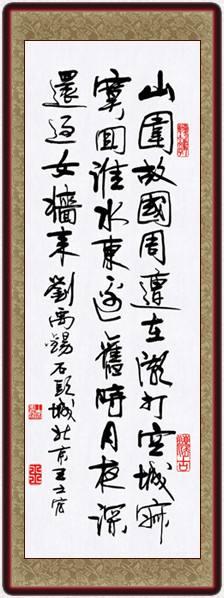 山圍故國周遭在潮打空城寂
寞回淮水東邊舊時月夜深
還過女牆來 劉禹錫石頭城北京王